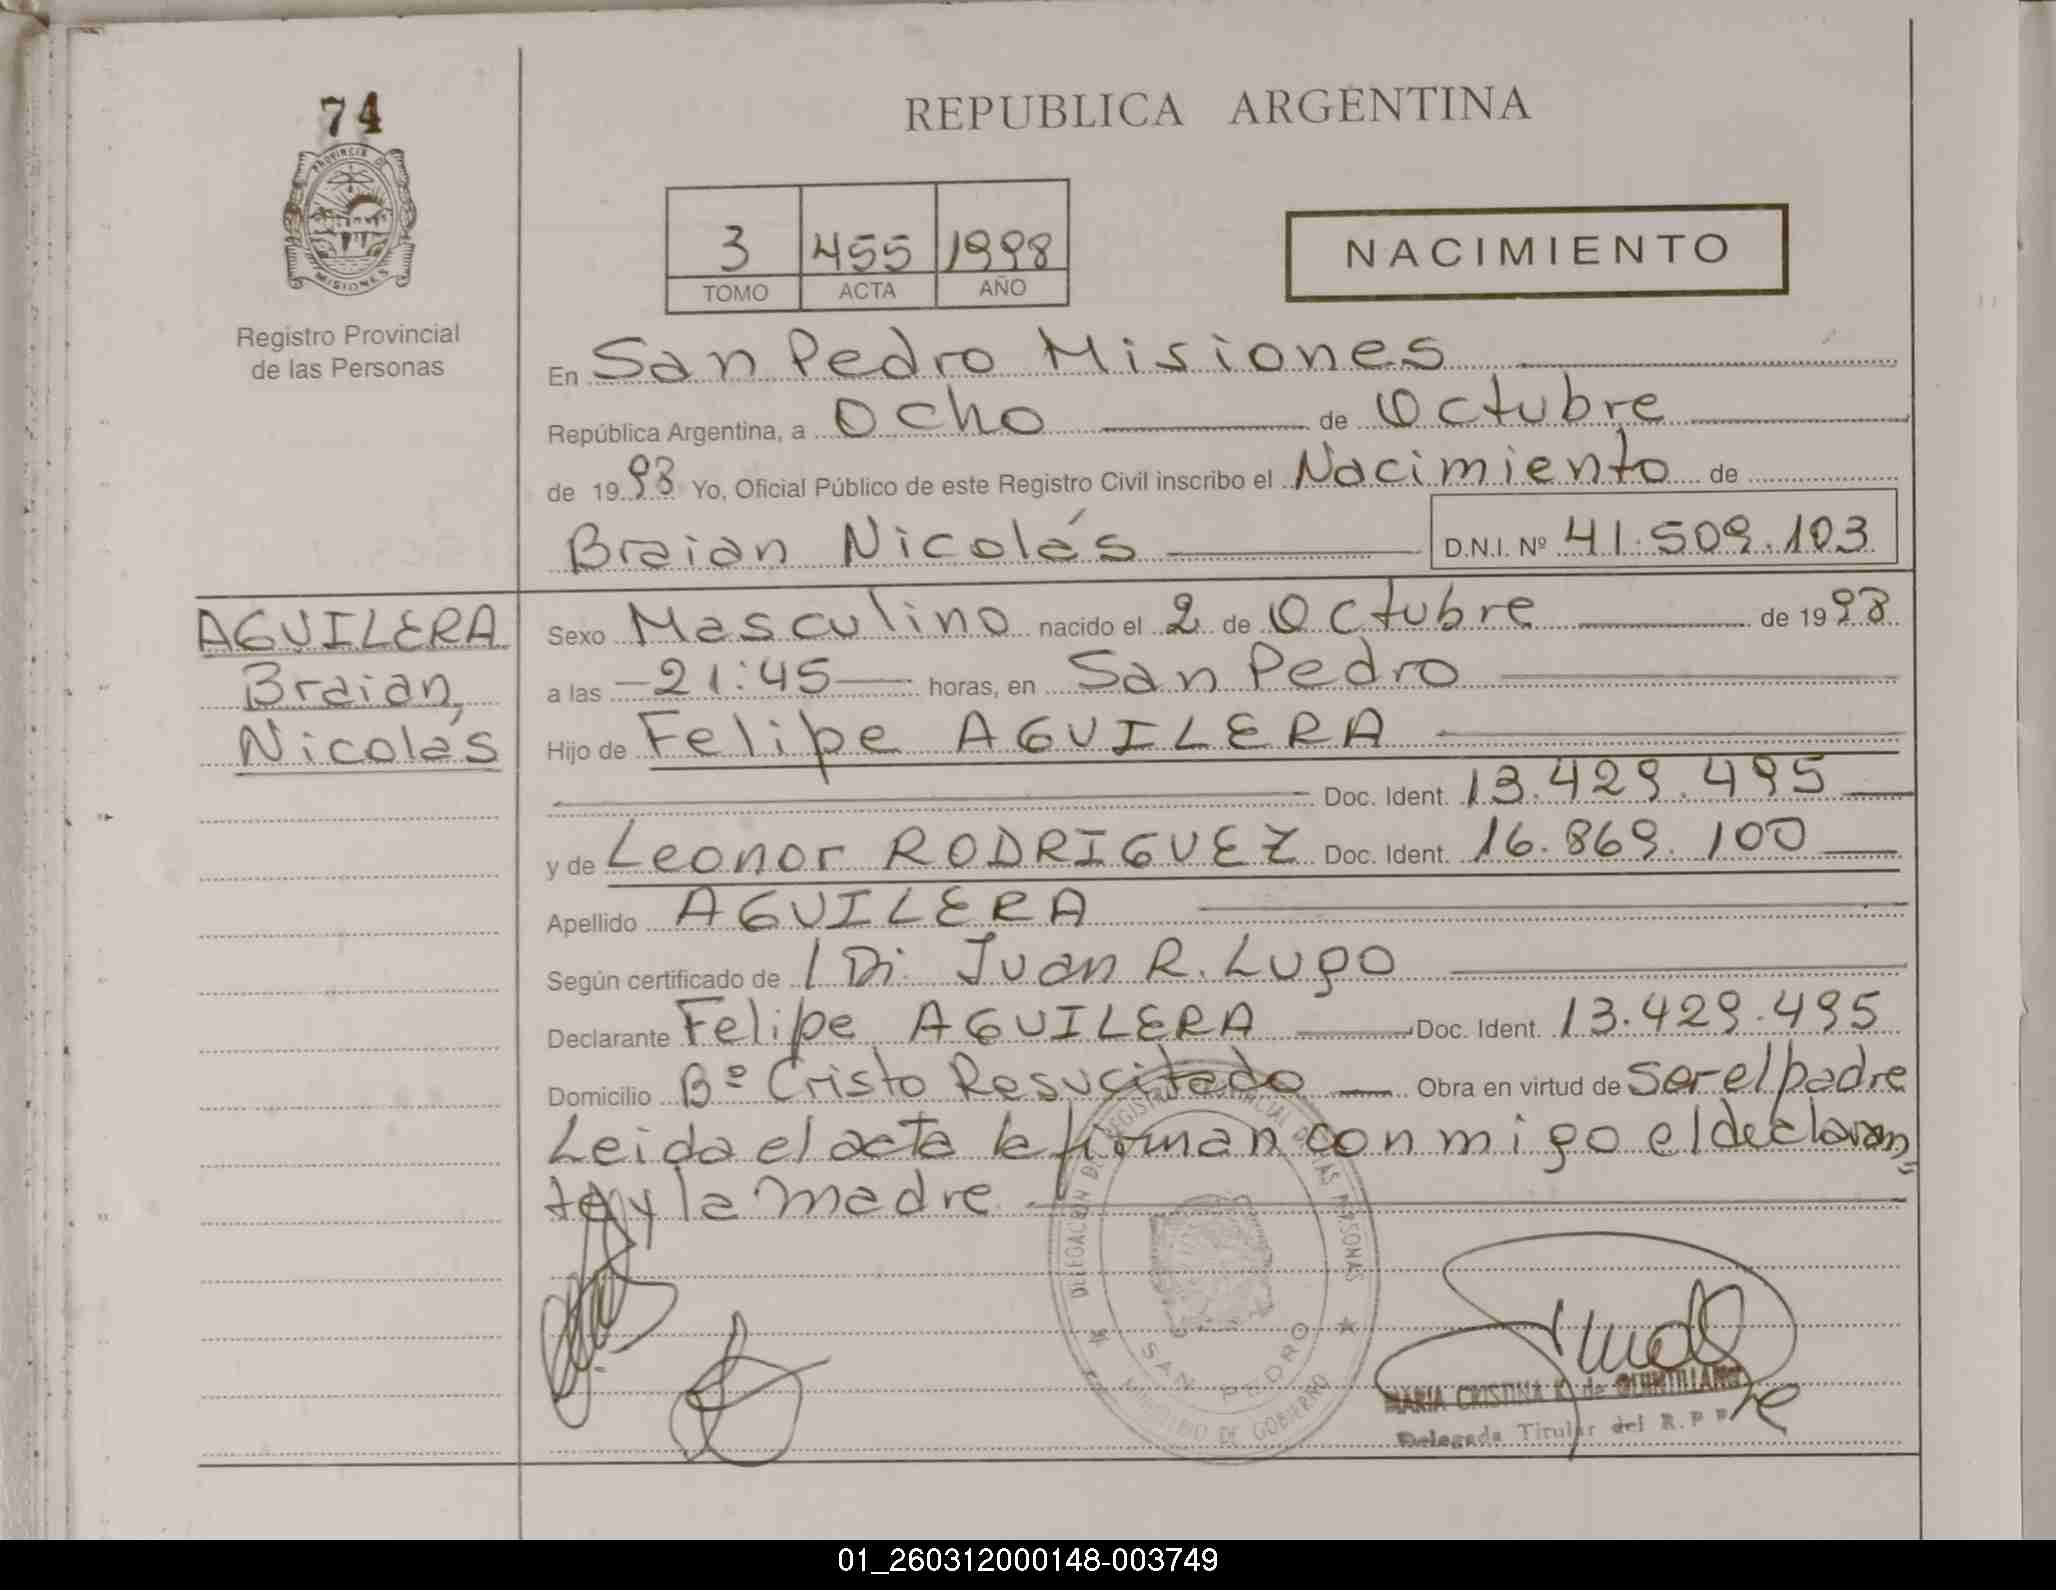 74
REPUBLICA ARGENTINA
PROVINCIA DE
MISIONES
3 455 1998
TOMO ACTA AÑO
NACIMIENTO
Registro Provincial
de las Personas
En San Pedro Misiones
República Argentina, a Ocho de Octubre
de 1998 Yo, Oficial Público de este Registro Civil inscribo el Nacimiento de
Braian Nicolás D.N.I. Nº 41.509.103
AGUILERA
Braian,
Nicolás
Sexo Masculino nacido el 2 de Octubre de 1998
a las -21:45- horas, en San Pedro
Hijo de Felipe AGUILERA
Doc. Ident. 13.429.495
y de Leonor RODRIGUEZ Doc. Ident. 16.869.100
Apellido AGUILERA
Según certificado de Juan R. Lugo
Declarante Felipe AGUILERA Doc. Ident. 13.429.495
Domicilio Bº Cristo Resucitado Obra en virtud de ser el padre
Leida el acta la firman conmigo el declaran=
te y la madre
DELEGACION DEL REGISTRO PROVINCIAL DE LAS PERSONAS
SAN PEDRO
MINISTERIO DE GOBIERNO
MARIA CRISTINA K. de QUINTILIANO
Delegada Titular del R.P.P.
01_260312000148-003749